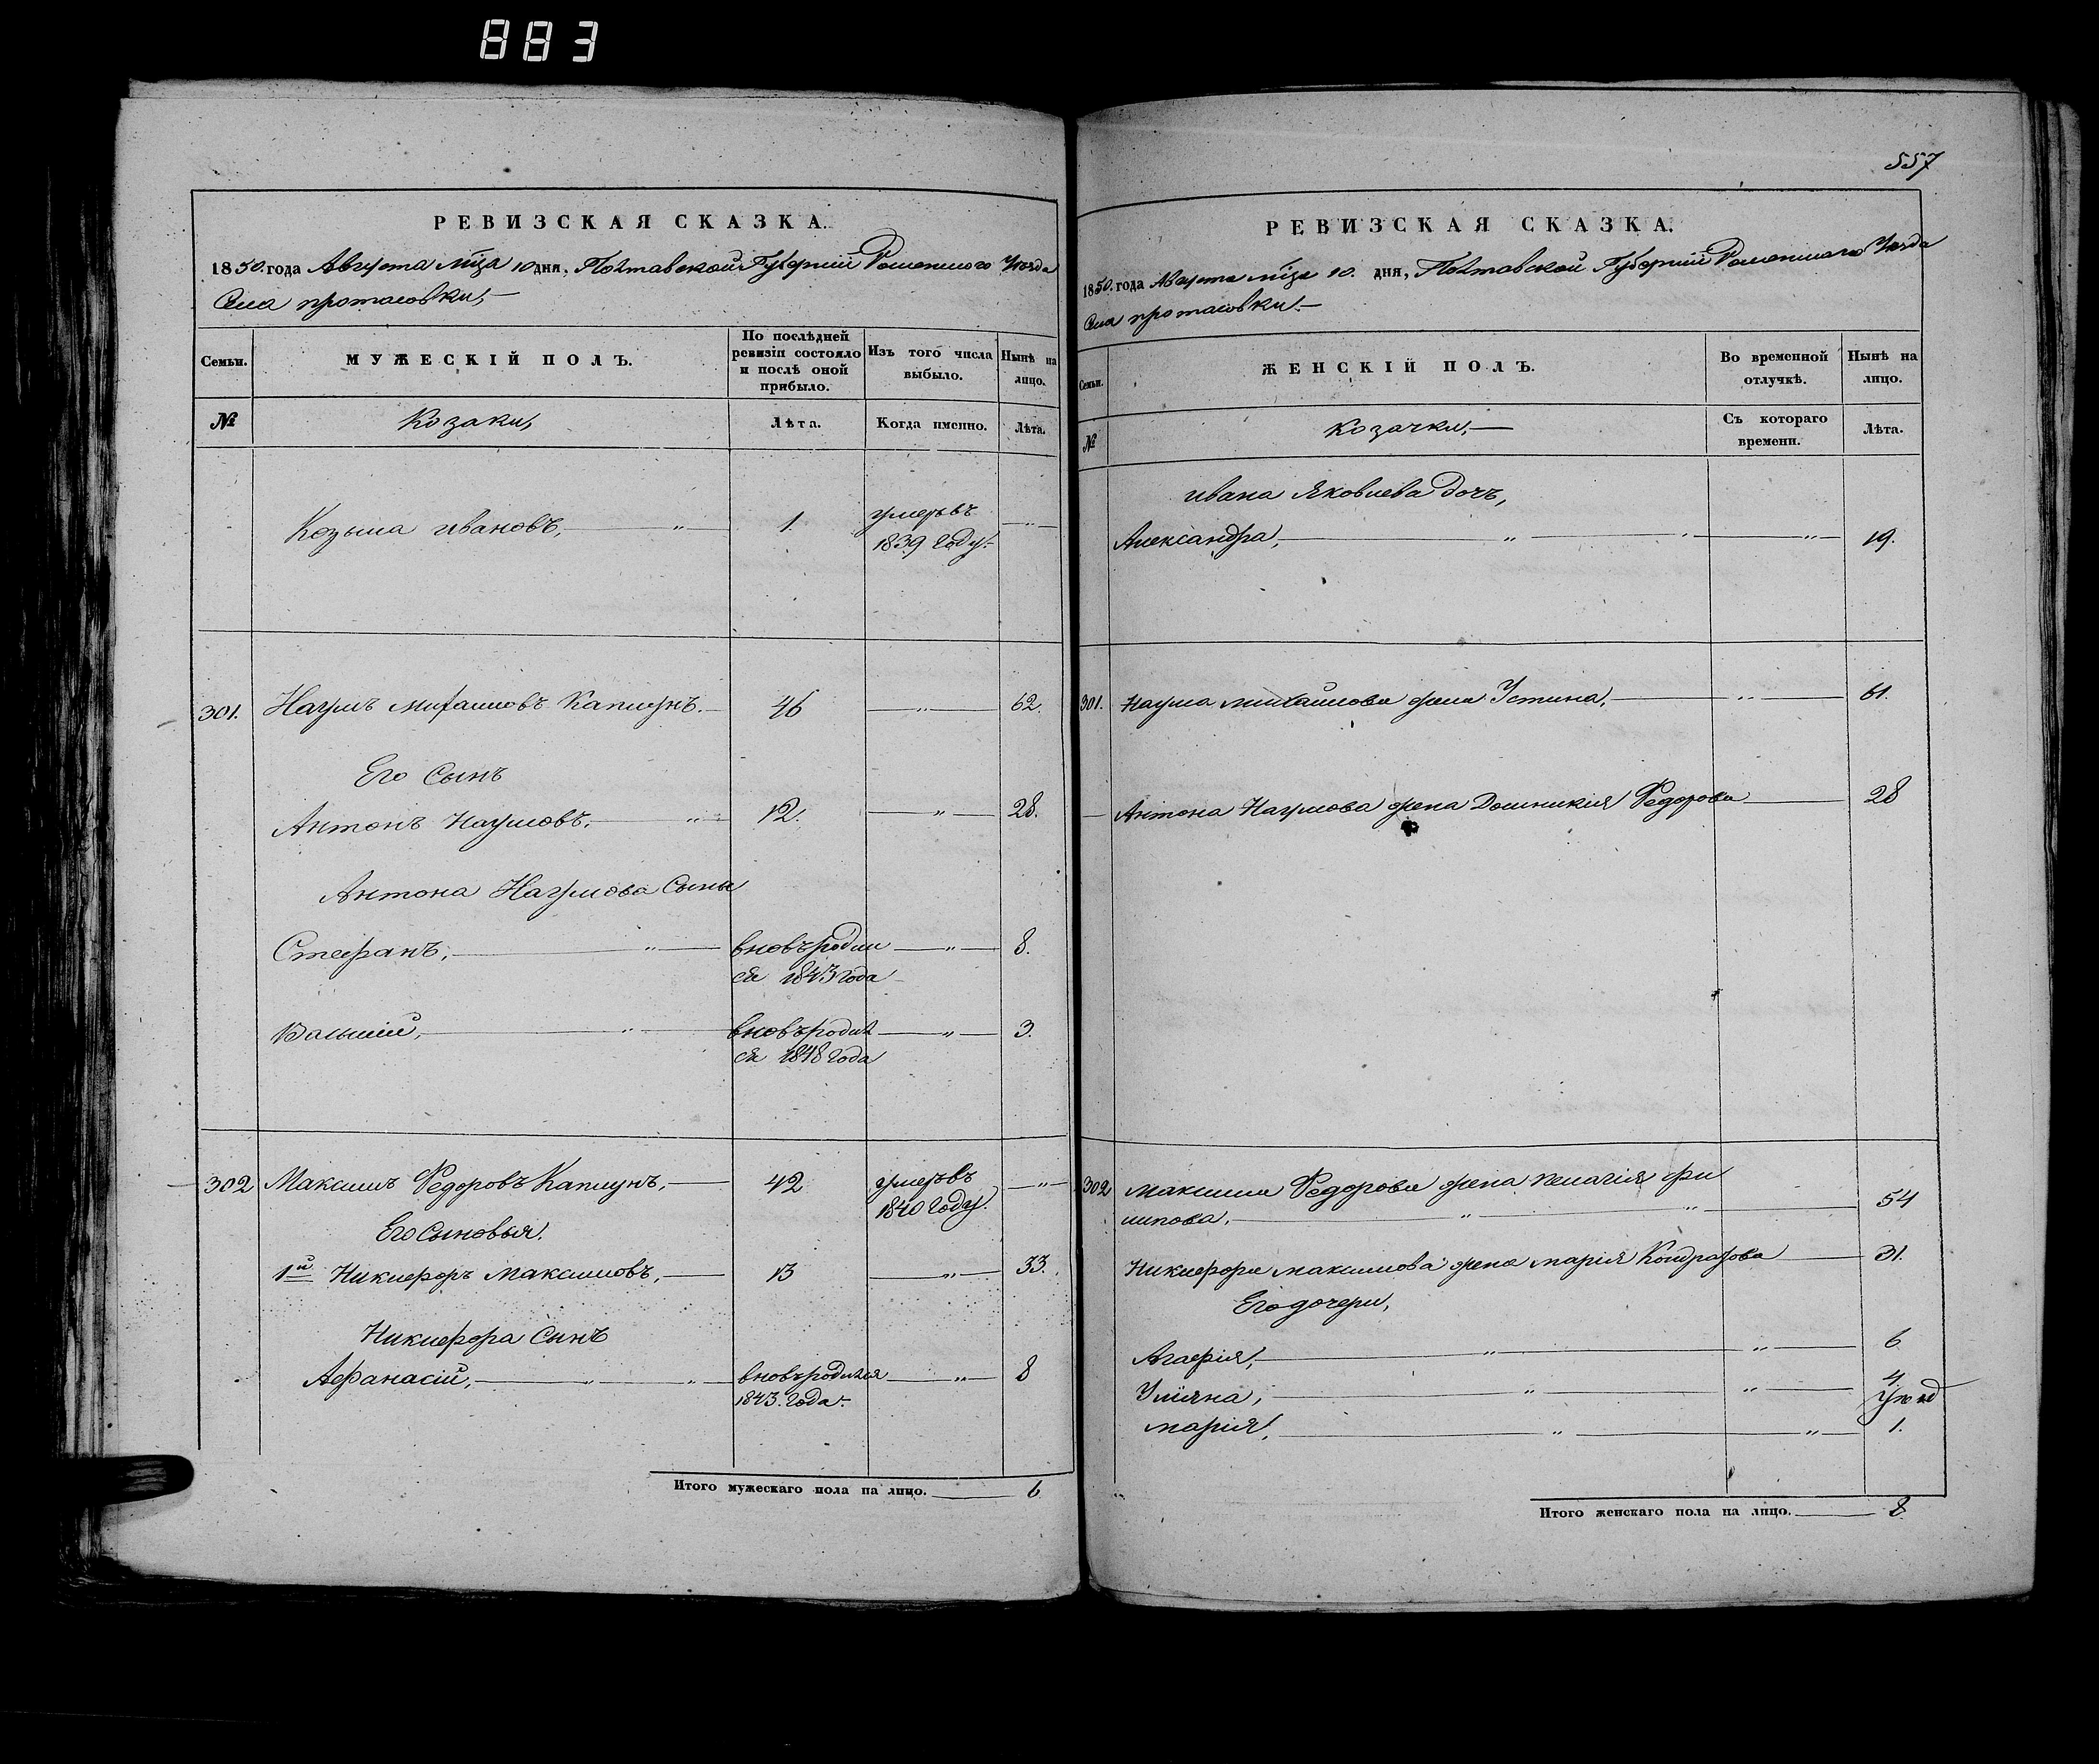 883
РЕВИЗСКАЯ СКАЗКА.
1850. года Августа мца 10 дня, Полтавской Губернии Роменского Уезда
Села протасовки,
Семьи.
МУЖЕСКІЙ ПОЛЪ.
По послѣдней ревизіи состояло и послѣ оной прибыло.
Изъ того числа выбыло.
Нынѣ на лицо.
№
Козаки,
Лѣта.
Когда именно.
Лѣта.
Козьма ивановъ, 1. умеръ въ
1839 году.
301. Наумъ михаиловъ Каплунъ. 46 62.
Его Сынъ
Антонъ Наумовъ, 12. 28.
Антона Наумова Сыны
Стефанъ, вновь родил 8.
ся 1843 года
Василий, вновь родил 3.
ся 1848 года
302 Максимъ Федоровъ Каплунъ, 42 умеръ въ
1840 году.
Его Сыновья.
1й Никифоръ Максимовъ, 13 33.
Никифора Сынъ
Афанасій, вновь родился 8
1843. года.
Итого мужескаго пола на лицо. 6
557
РЕВИЗСКАЯ СКАЗКА.
1850. года Августа мца 10. дня, Полтавской Губернии Роменского Уезда
Села протасовки.
Семьи.
ЖЕНСКІЙ ПОЛЪ.
Во временной отлучкѣ.
Нынѣ на лицо.
№
Козачки,
Съ котораго времени.
Лѣта.
ивана Яковлева дочь,
Александра, 19.
301. Наума михаилова жена Устина, 61.
Антона Наумова жена Домникия Федорова 28
302 максима Федорова жена пелагия фи
липова, 54
Никифора максимова жена мария Кондратова 31.
Его дочери,
Агафия, 6
Улияна, 4
мария, 1.
Итого женскаго пола на лицо. 8